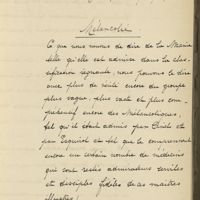 Mélancolie
Ce que nous venons de dire de la Manie
telle qu'elle est admise dans la clas-
sification régnante, nous pouvons le dire
avec plus de vérité encore du groupe
plus vague, plus vaste et plus com-
préhensif encore des Mélancolies,
tel qu'il était admis par Pinel et
par Esquirol et tel que le comprennent
encore un certain nombre de médecins
qui sont restés admirateurs serviles
et disciples fidèles de ces maîtres
illustres!